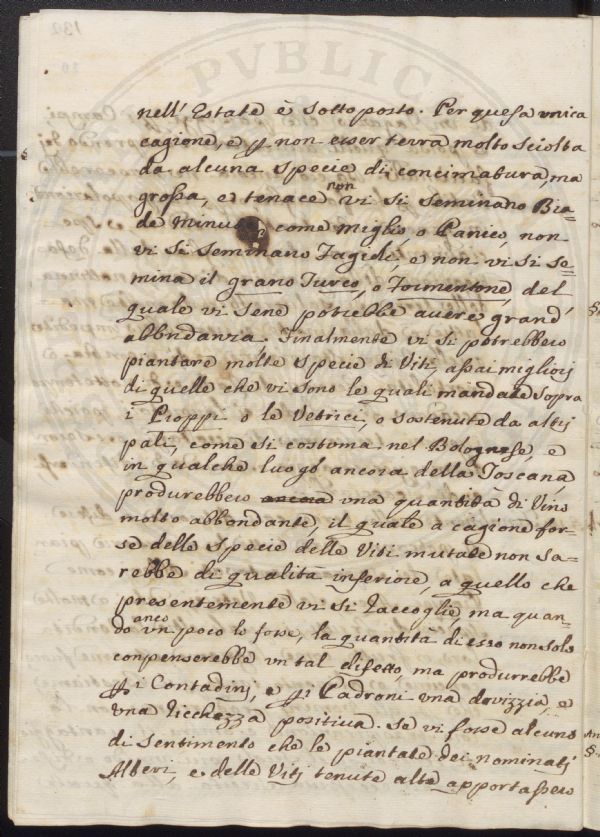 nell' Estate è sottoposto. Per questa unica
cagione, e p non esser terra molto sciolta
da alcuna specie di concimatura, ma
grossa, e tenace non vi si seminano Bia=
de Minu come Miglio, o Panico, non
vi si seminano Fagioli, e non vi si se=
mina il grano Turco, o Formentone, del
quale vi sene potrebbe avere grand'
abbndanza. Finalmente vi si potrebbero
piantare molte specie di Viti, assai migliorj
di quelle che vi sono le quali mandate sopra
i Pioppi o le Vetrici, o sostenute da altrj
pali, come si costuma nel Bolognese, e
in qualche luogo ancora della Toscana,
produrebbero ancora una quantità di Vino
molto abbondante, il quale a cagione for=
se delle specie delle Viti mutate non sa=
rebbe di qualità inferiore, a quello che
presentemente vi si raccoglie, ma quan=
do anco un poco lo fosse, la quantità di esso non solo
conpenserebbe un tal difetto, ma produrrebbe
p i Contadinj, e p i Padroni una dovizzia, e
una ricchezza positiva. Se vi fosse alcuno
di sentimento che le piantate dei nominatj
Alberi, e delle Vitj tenute alte apportassero
PVBLIC
132